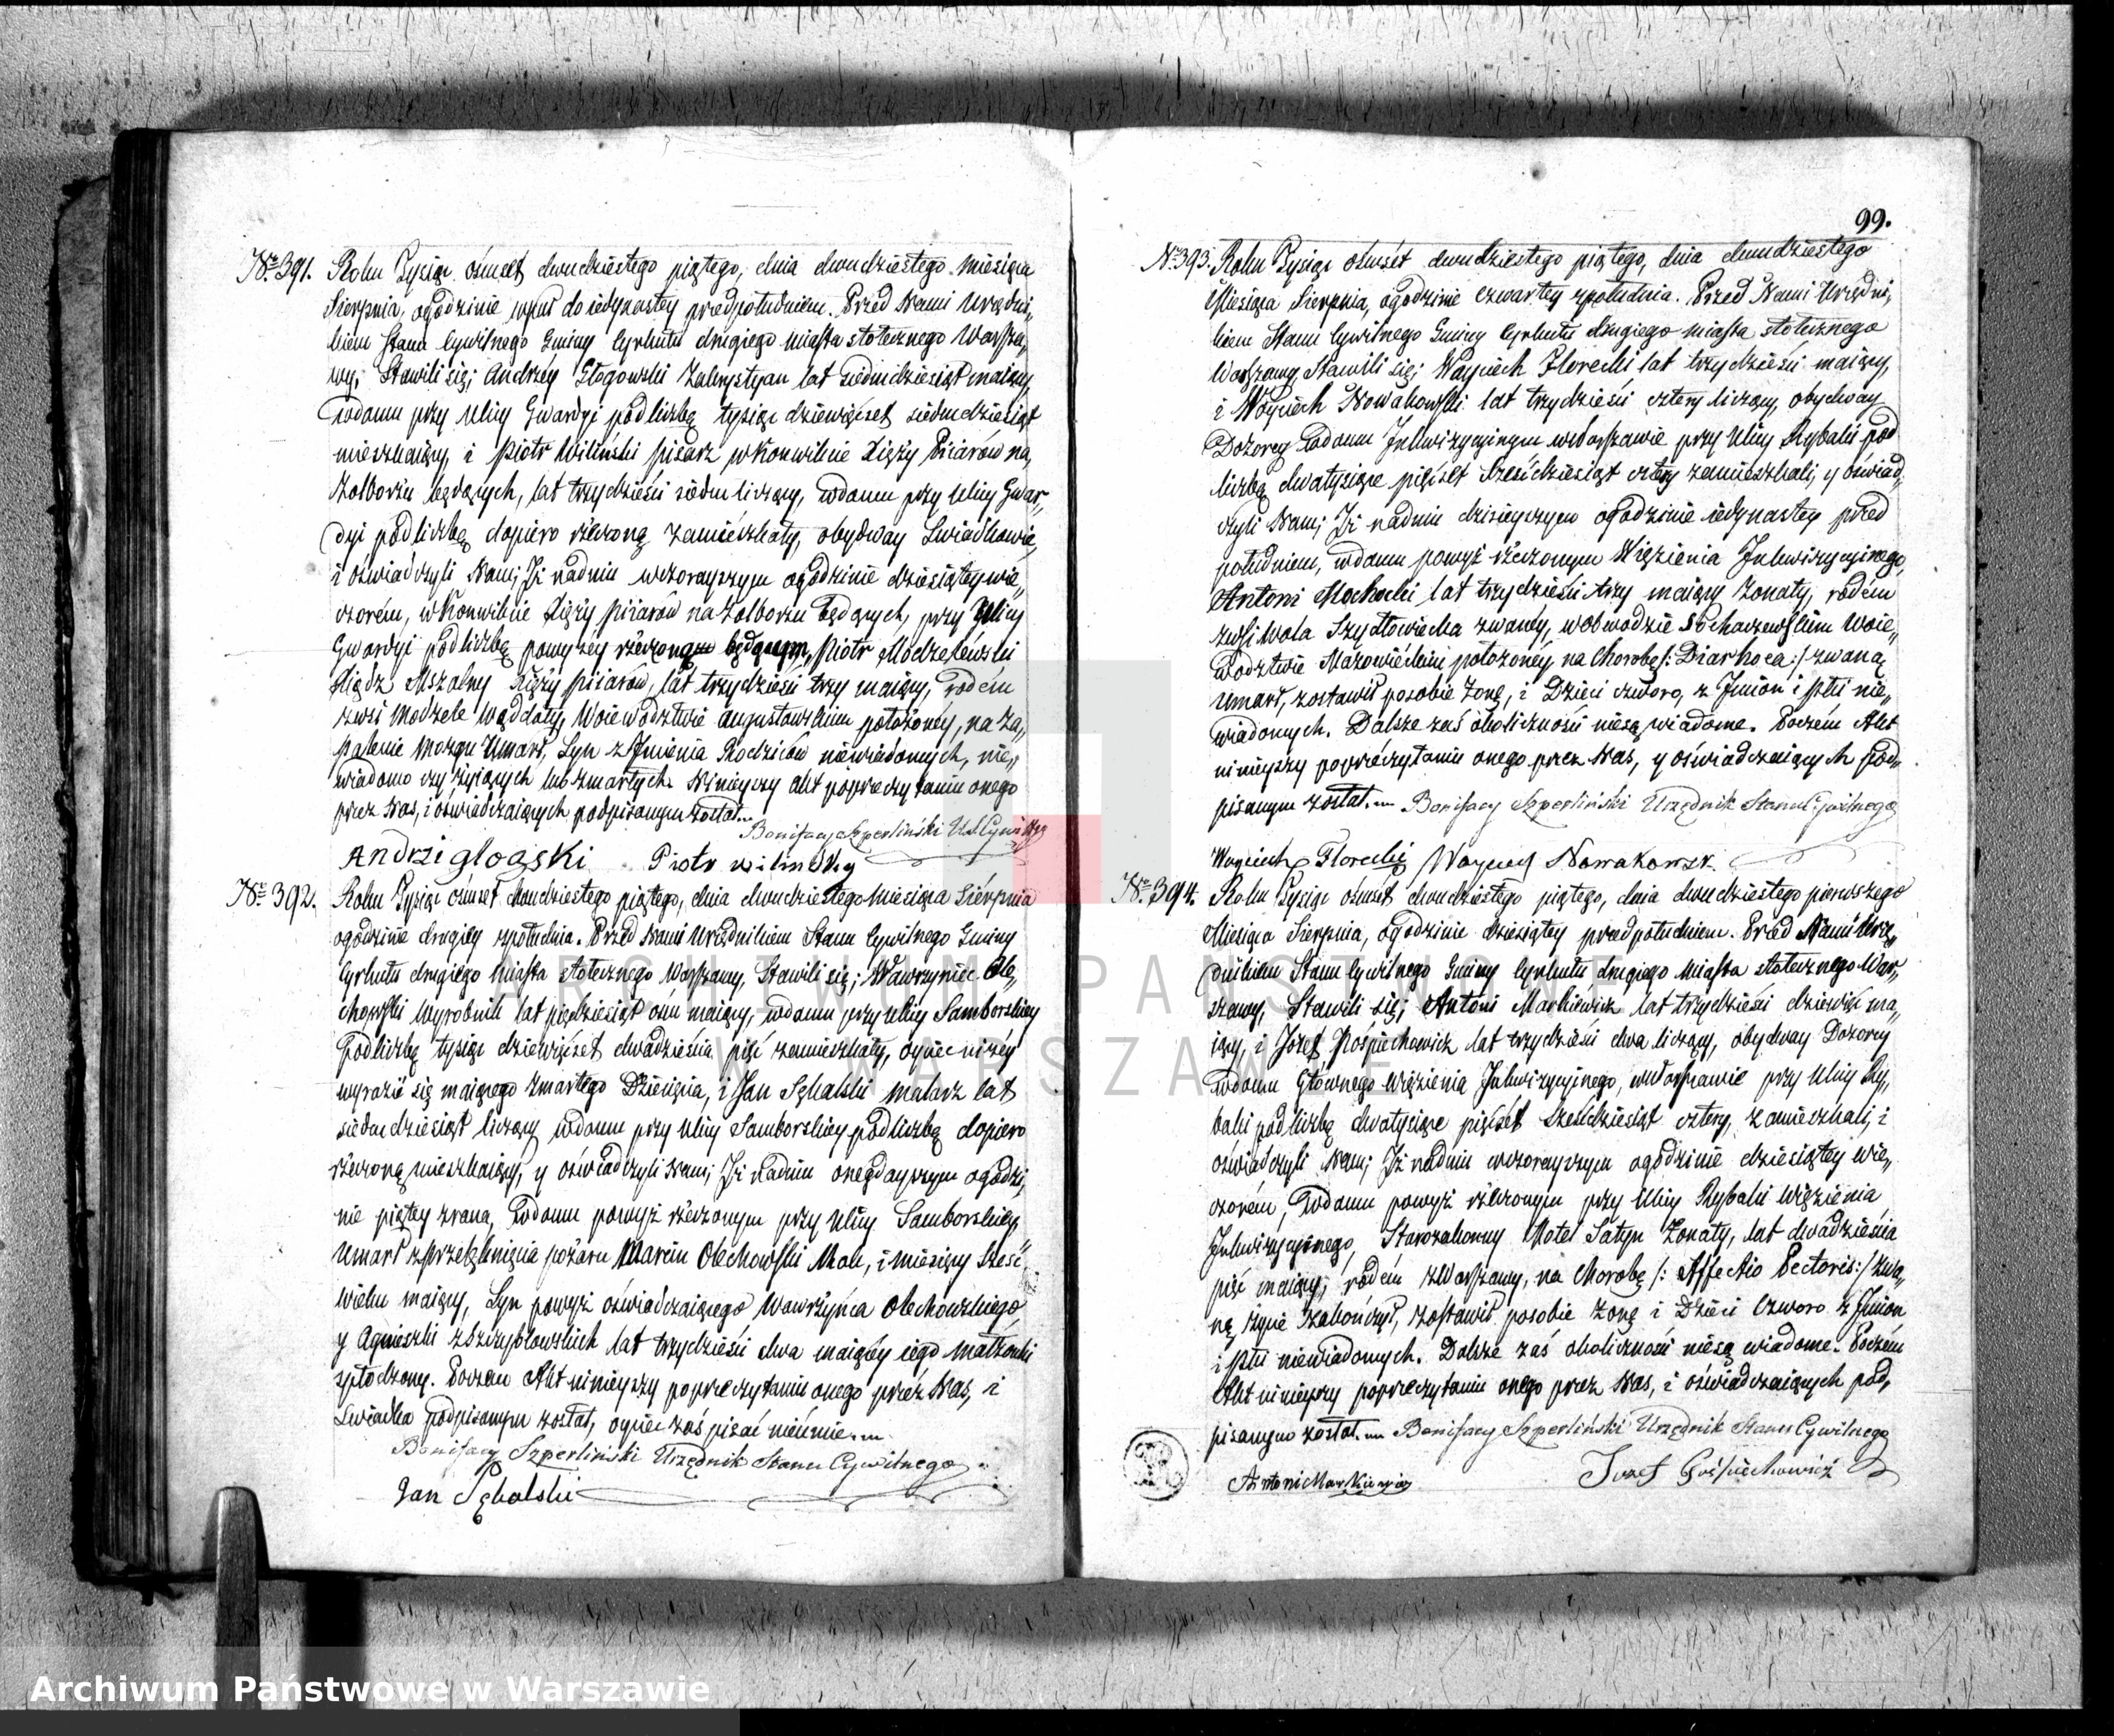 Nro 391. Roku Tysiąc ośmset dwudziestego piątego, dnia dwudziestego Miesiąca
Sierpnia, ogodzinie wpuł do iedynastey przedpołudniem. Przed Nami Urzędni,,
kiem Stanu Cywilnego Gminy Cyrkułu drugiego Miasta stołecznego Warsza,,
wy, Stawili się; Andrzéy Głogowski Zakrystyan lat siedmdziesiąt maiący
wdomu przy Ulicy Gwardyi podliczbą tysiąc dziewięćset siedmdziesiąt
mieszkaiący, i Piotr Wiliński pisarz wkonwikcie Xięży Piiarów na,,
Żolborzu będących, lat trzydzieści siedm liczący, wdomu przy Ulicy Gwar,,
dyi podliczbą dopiero rzeczoną zamieszkały, obydway Świadkowie,
i oświadczyli Nam; Iż nadniu wczorayszym ogodzinie dziesiątey wie,,
czorem, wKonwikcie Xięży Piiarów na Żolborzu będących, przy Ulicy
Gwardyi podliczbą powyżey rzeczonym będącym, Piotr Modzelewski
Xiądz Mszalny Xięży Piiarów, lat trzydzieści trzy maiący, rodem
zwsi Modzele Województwie Augustowskim położoney, na Za,,
palenie Mozgu Umarł, Syn zImienia Rodziców niewiadomych, nie,,
wiadomo czy żyiących lub zmarłych. Ninieyszy Akt poprzeczytaniu onego
przez Nas, i oświadczaiących podpisanym został.
Bonifacy Szperliński U.S. Cywilnego
Andrzi gloGski Piotr wilinsky
Nro 392. Roku Tysiąc ośmset dwudziestego piątego, dnia dwudziestego Miesiąca Sierpnia
ogodzinie drugiey zpołudnia. Przed Nami Urzędnikiem Stanu Cywilnego Gminy
Cyrkułu drugiego Miasta stołecznego Warszawy, Stawili się; Wawrzyniec Ole,,
chowski Wyrobnik lat pięćdziesiąt ośm maiący, wdomu przy Ulicy Samborskiey
podliczbą tysiąc dziewięćset dwadzieścia pięć zamieszkały, oyciec niżey
wyrazić się maiącego Zmarłego Dziecięcia, i Jan Sękalski Malarz lat
siedmdziesiąt liczący wdomu przy Ulicy Samborskiey podliczbą dopiero
rzeczoną mieszkaiący, y oświadczyli Nam; Iż nadniu onegdayszym ogodzi,,
nie piątey zrana, wdomu powyż rzeczonym przy Ulicy Samborskiey
Umarł zprzelęknięcia pożaru Marcin Olechowski Rok, i miesięcy sześć
wieku maiący, Syn powyż oświadczaiącego Wawrzyńca Olechowskiego
y Agnieszki lat trzydzieści dwa maiącey iego małżonki
spłodzony. Poczem Akt ninieyszy poprzeczytaniu onego przez Nas, i
Świadka podpisanym został, oyciec zaś pisać nieumie.
Bonifacy Szperliński Urzędnik Stanu Cywilnego
Jan Sękalski
99.
Nro 393. Roku Tysiąc ośmset dwudziestego piątego, dnia dwudziestego
Miesiąca Sierpnia, ogodzinie czwartey zpołudnia. Przed Nami Urzędni,,
kiem Stanu Cywilnego Gminy Cyrkułu drugiego miasta stołecznego
Warszawy, Stawili się; Woyciech Florecki lat trzydzieści maiący,
i Woyciech Nowakowski lat trzydzieści cztery liczący, obydway
Dozorcy wdomu Inkwizycyinym wWarszawie przy Ulicy Rybaki pod
liczbą dwatysiące pięćset sześćdziesiąt cztery zamieszkali, y oświad,,
czyli Nam; Iż nadniu dzisieyszym ogodzinie iedynastey przed
południem, wdomu powyż rzeczonym Więzienia Inkwizycyinego,
Antoni Mochocki lat trzydzieści trzy maiący Żonaty, rodem
zwsi Wola Szydłowiecka zwaney, wobwodzie Sochaczewskim Woie,,
wodztwie Mazowieckim położoney, na Chorobę /: Diarhoea :/ zwaną
Umarł, zostawił posobie Żonę, i Dzieci czworo, z Imion i płci nie,,
wiadomych. Dalsze zaś okoliczności niesą wiadome. Poczém Akt
ninieyszy poprzeczytaniu onego przez Nas, y oświadczaiących pod,,
pisanym został. Bonifacy Szperliński Urzędnik Stanu Cywilnego
Woyciech Florecki Woyciey Nowakowsk.
Nro 394. Roku Tysiąc ośmset dwudziestego piątego, dnia dwudziestego pierwszego
Miesiąca Sierpnia, ogodzinie dziesiątey przedpołudniem. Przed Nami Urzę,,
dnikiem Stanu Cywilnego Gminy Cyrkułu drugiego Miasta stołecznego War,,
szawy, Stawili się; Antoni Markiewicz lat trzydzieści dziewięć ma,,
iący, i Józef Pośpiechowicz lat trzydzieści dwa liczący, obydway Dozorcy
wdomu Głównego Więzienia Inkwizycyinego, wWarszawie przy Ulicy Ry,,
baki podliczbą dwatysiące pięćset sześćdziesiąt cztery, zamieszkali, i
oświadczyli Nam; Iż nadniu wczorayszym ogodzinie dziesiątey wie,,
czorem, wdomu powyż rzeczonym przy Ulicy Rybaki Więzienia
Inkwizycyinego, Starozakonny Motel Satyn Żonaty, lat dwadzieścia
pięć maiący, rodem zWarszawy, na Chorobę /: Affectio Pectoris :/ zwa,,
ną, życie zakończył, zostawił posobie Żonę i Dzieci Czworo z Imion
i płci niewiadomych. Dalsze zaś okoliczności niesą wiadome. Poczém
Akt ninieyszy poprzeczytaniu onego przez Nas, i oświadczaiących pod,,
pisanym został. Bonifacy Szperliński Urzędnik Stanu Cywilnego
Antoni Markiewicz Jozef Pośpiechowicz
ARCHIWUM PAŃSTWOWE
W WARSZAWIE
Archiwum Państwowe w Warszawie